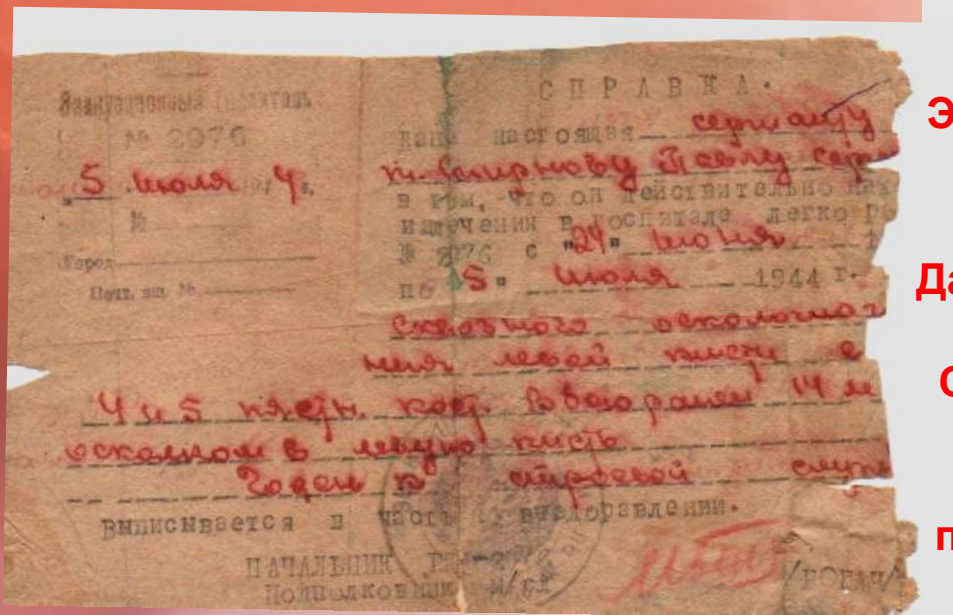 Эвакуационный госпиталь
№ 2976
"5" июля 194 г.
№
Город
Почт. ящ. №
СПРАВКА.
дана настоящая сержанту
т. Смирнову Павлу Сер
в том, что он действительно нах
излечении в госпитале легко р
№ 2976 с "29" июня 1
по "5" июля 1944 г.
сквозного осколочног
ния левой кисти с
4 и 5 пястн. кост. В бою ранен 14 м
осколком в левую кисть
Годен к строевой служ
выписывается в часть по выздоровлении.
НАЧАЛЬНИК
Подполковник м/сл
/РОГАЧ/
Э
Да
С
п